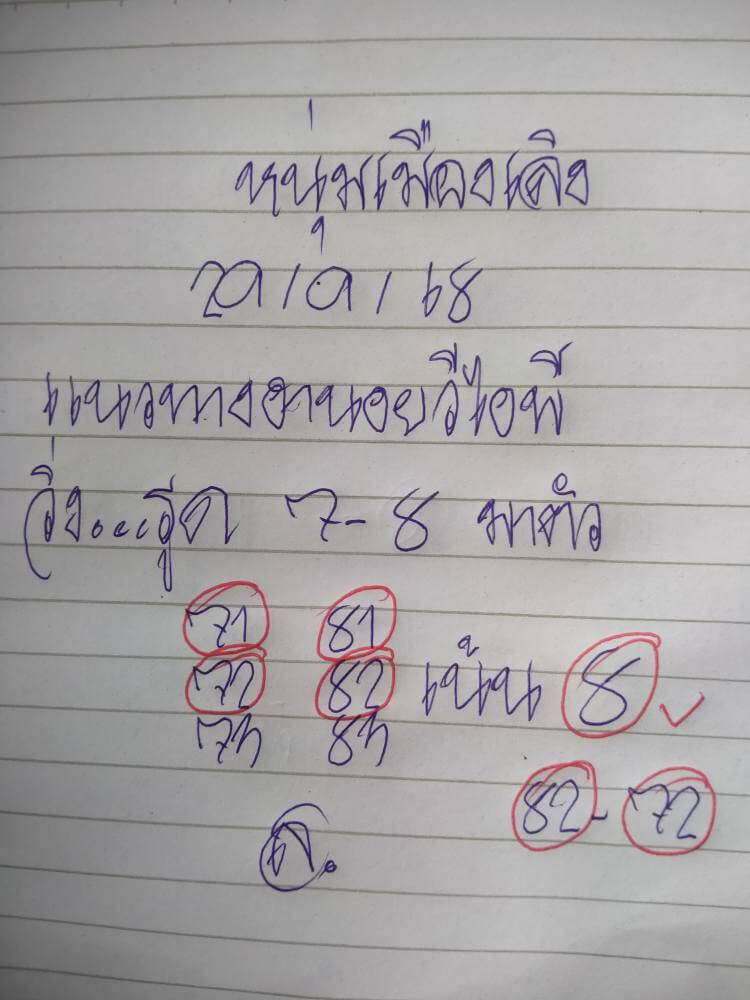 หนุ่มเมืองเลิง
แนวทางฮานอยวีไอพี
วิ่ง...รูด 7-8 มาตัว
71 81
72 82 เน้น 8
73 83
82-72